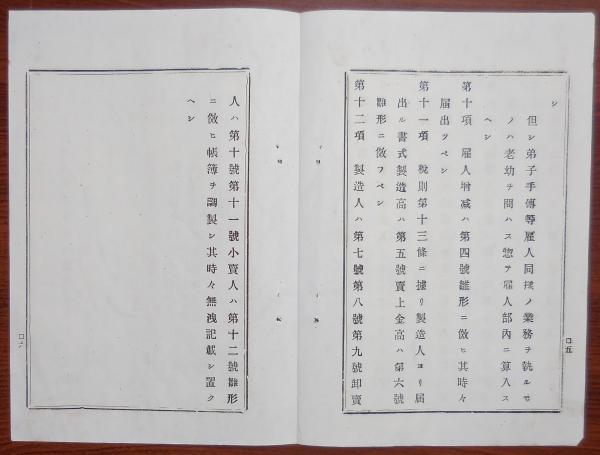 シ
但シ弟子手傅等雇人同樣ノ業務ヲ執ルモ
ノハ老幼ヲ問ハス惣テ雇人部內ニ算入ス
ヘシ
第十項 雇人增減ハ第四號雛形ニ倣ヒ其時々
届出ツヘシ
第十一項 稅則第十三條ニ據リ製造人ヨリ届
出ル書式製造高ハ第五號賣上金高ハ第六號
雛形ニ倣フヘシ
第十二項 製造人ハ第七號第八號第九號卸賣
口五
人ハ第十號第十一號小賣人ハ第十二號雛形
ニ倣ヒ帳簿ヲ調製シ其時々無洩記載シ置ク
ヘシ
口六